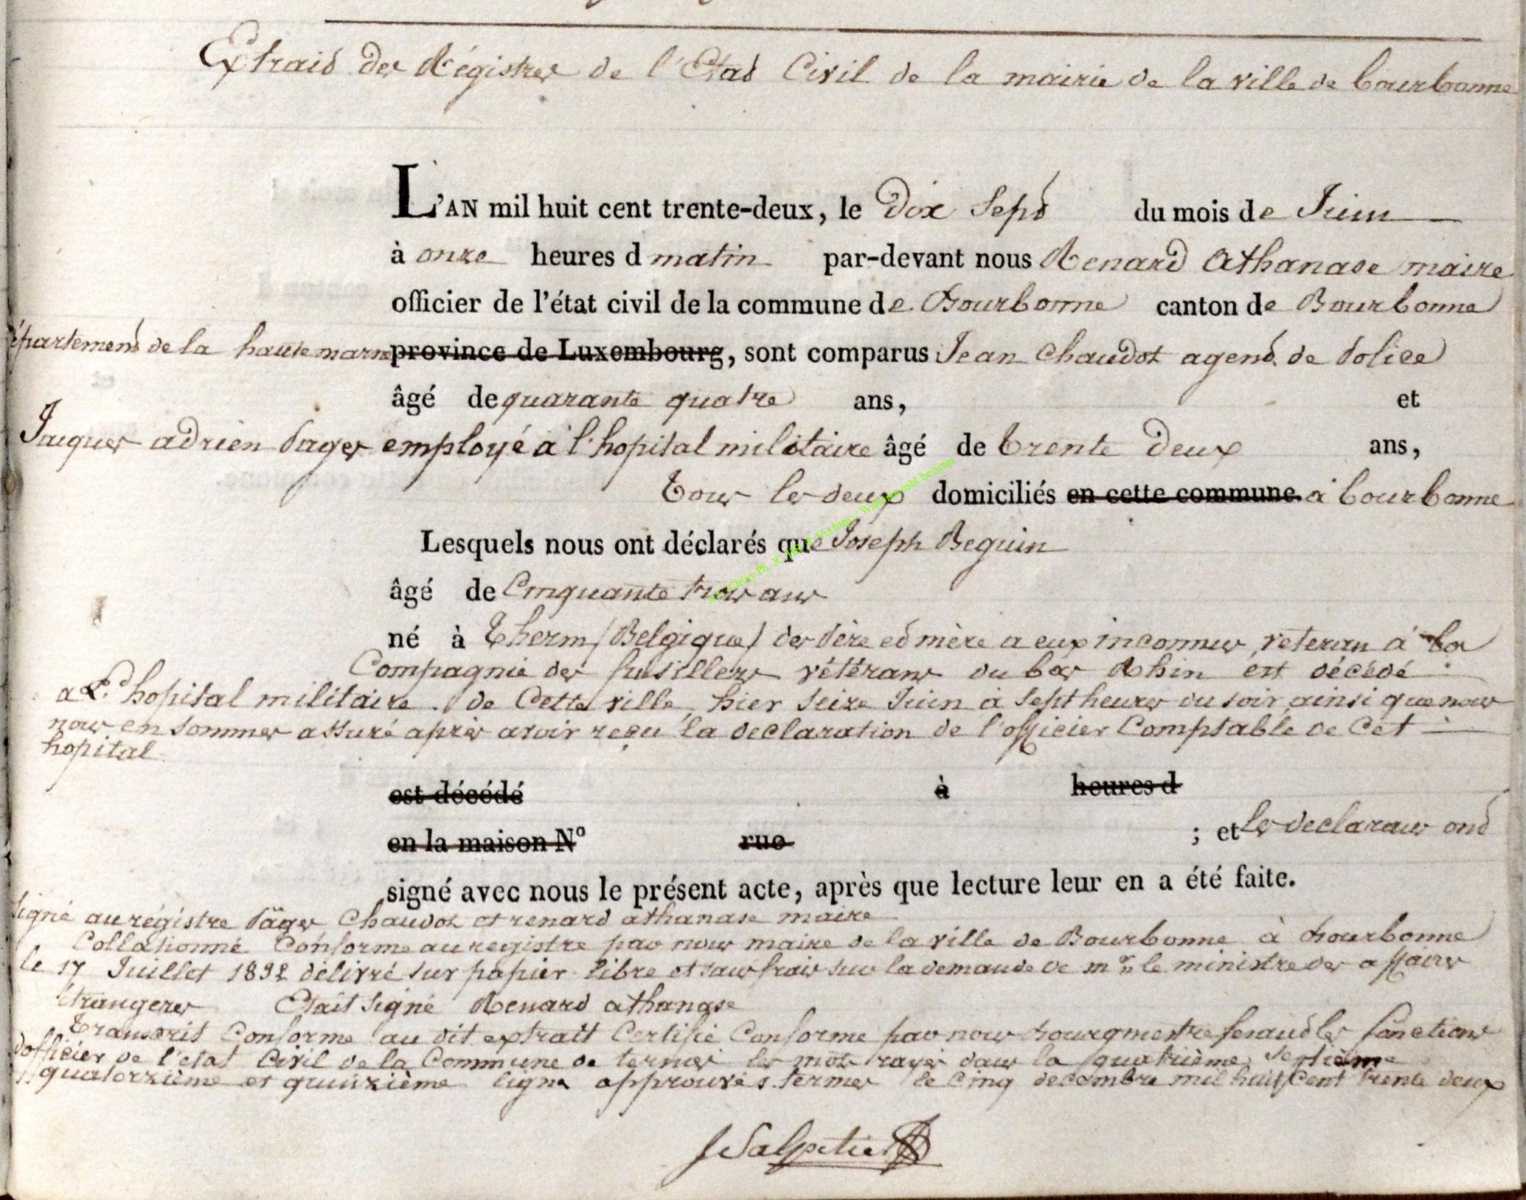 Extrait des Régistres de l'Etat Civil de la mairie de la ville de bourbonne
L'AN mil huit cent trente-deux, le Dix Sept du mois de Juin
à onze heures d matin par-devant nous Renard Athanase maire
officier de l'état civil de la commune de Bourbonne canton de Bourbonne
département de la haute marne province de Luxembourg, sont comparus Jean Chaudot agent de police
âgé de quarante quatre ans, et
Jacques adrien pages employé à l'hopital militaire âgé de trente Deux ans,
tous les deux domiciliés en cette commune à bourbonne
Lesquels nous ont déclarés que Joseph Beguin
âgé de Cinquante trois ans
né à therm (Belgique) des père et mère a eux inconnus, veteran à la
Compagnie des fusillers vétérans du bas Rhin est décédé
a l'hopital militaire de Cette ville, hier Seize Juin à Sept heures du soir, ainsi que nous
nous en sommes assuré après avoir reçu la declaration de l'officier Comptable de Cet
hopital
est décédé à heures d
en la maison N° rue ; et les declarans ont
signé avec nous le présent acte, après que lecture leur en a été faite.
signé au régistre pages Chaudot et renard athanase maire
Collationné Conforme au registre par nous maire de la ville de Bourbonne à bourbonne
le 17 Juillet 1832 délivré sur papier libre et sans frais sur la demande de mr le ministre des affaires
étrangeres Etait signé Renard athanase
transcrit Conforme au dit extrait Certifié Conforme par nous bourgmestre fesant les fonctions
d'officier de l'état Civil de la Commune de termes les mots rayés dans la quatrième, Septième
quatorzième et quinzième ligne approuvés. termes le Cinq decembre mil huit Cent trente deux
J Salpetier